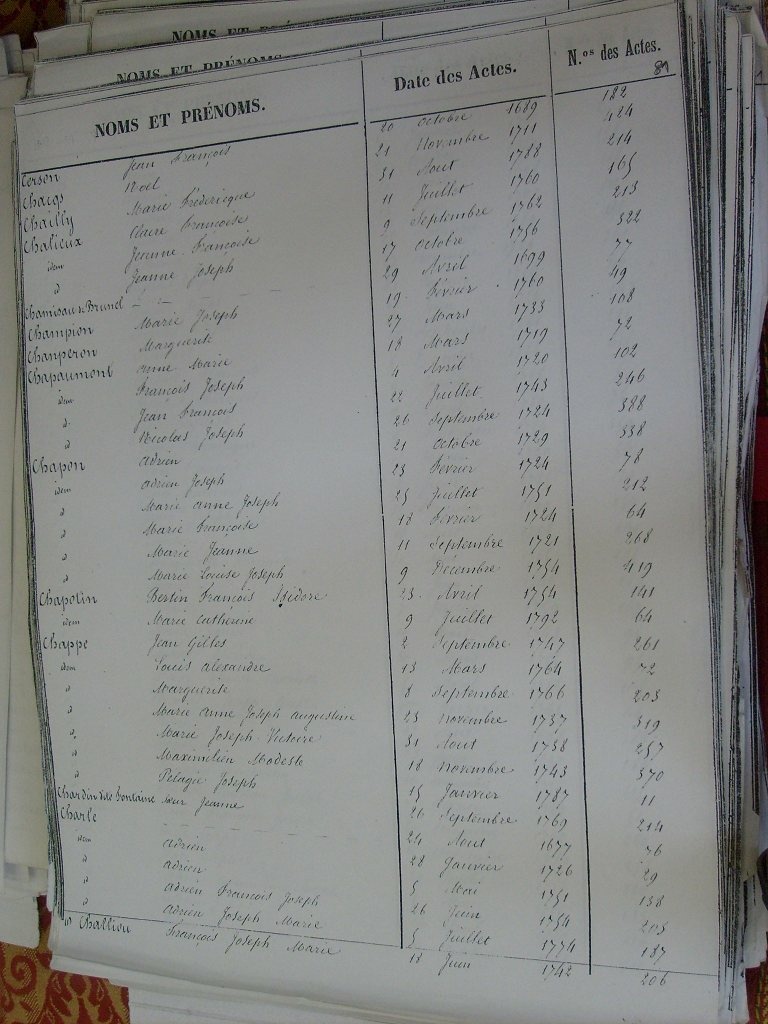 NOMS ET PRÉNOMS.
NOMS ET PRÉNOMS.
NOMS ET PRÉNOMS. Date des Actes. N.os des Actes.
81
Cerson Jean François 20 octobre 1689 182
Chacqs Noël 21 Novembre 1711 424
Chailly Marie Frédérique 31 Aout 1788 214
Chalieux Claire Françoise 11 Juillet 1760 165
idem Jeanne Françoise 9 Septembre 1762 213
d Jeanne Joseph 17 octobre 1756 322
Brunel 29 Avril 1699 77
Champion Marie Joseph 19 Février 1760 49
Chanperon Marguerite 27 Mars 1733 108
Chapaumont anne Marie 18 Mars 1719 72
idem François Joseph 4 Avril 1720 102
d Jean François 22 Juillet 1743 246
d Nicolas Joseph 26 Septembre 1724 388
Chapon adrien 21 octobre 1729 338
idem adrien Joseph 23 Février 1724 78
d Marie anne Joseph 25 Juillet 1751 212
d Marie Françoise 18 Février 1724 64
d Marie Jeanne 11 Septembre 1721 268
d Marie Louise Joseph 9 Décembre 1754 419
Chapotin Bertin François Isidore 23 Avril 1754 141
idem Marie Catherine 9 Juillet 1792 64
Chappe Jean Gilles 2 Septembre 1747 261
idem Louis alexandre 13 Mars 1764 72
d Marguerite 8 Septembre 1766 203
d Marie anne Joseph augustine 23 novembre 1737 319
d Marie Joseph Victoire 31 Aout 1738 257
d Maximilien Modeste 18 novembre 1743 370
d Pelagie Joseph 15 Janvier 1787 11
Chardin Fontaine Jeanne 26 Septembre 1769 214
Charle 24 Aout 1677 76
idem adrien 28 Janvier 1726 29
d adrien 5 Mai 1751 138
d adrien François Joseph 26 Juin 1754 205
d adrien Joseph Marie 5 Juillet 1774 187
Challiou François Joseph Marie 13 Juin 1742 206